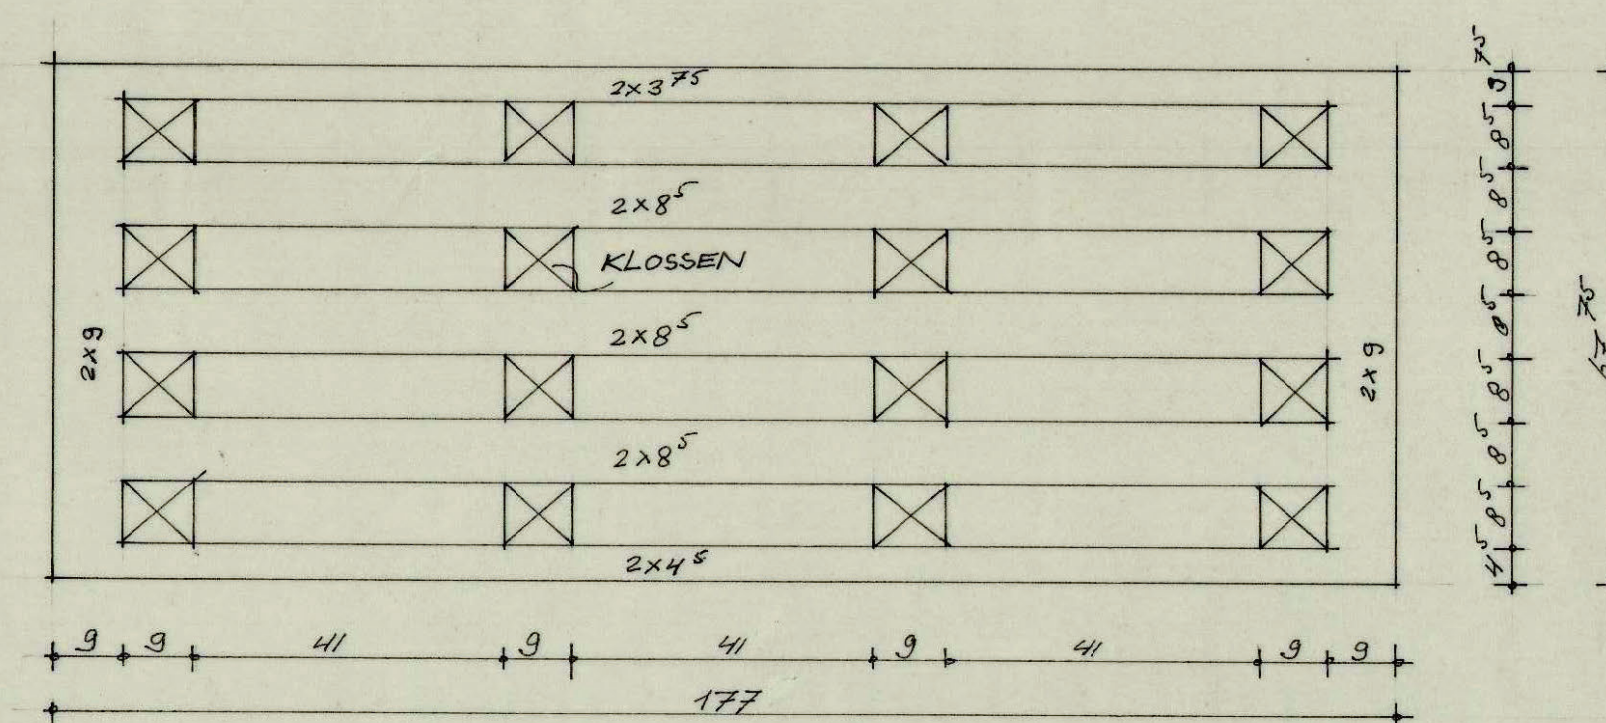 2×3⁷⁵
2×8⁵
KLOSSEN
2×8⁵
2×8⁵
2×4⁵
2×9
2×9
9 9 41 9 41 9 41 9 9
177
4⁵ 8⁵ 8⁵ 8⁵ 8⁵ 8⁵ 8⁵ 8⁵ 3⁷⁵